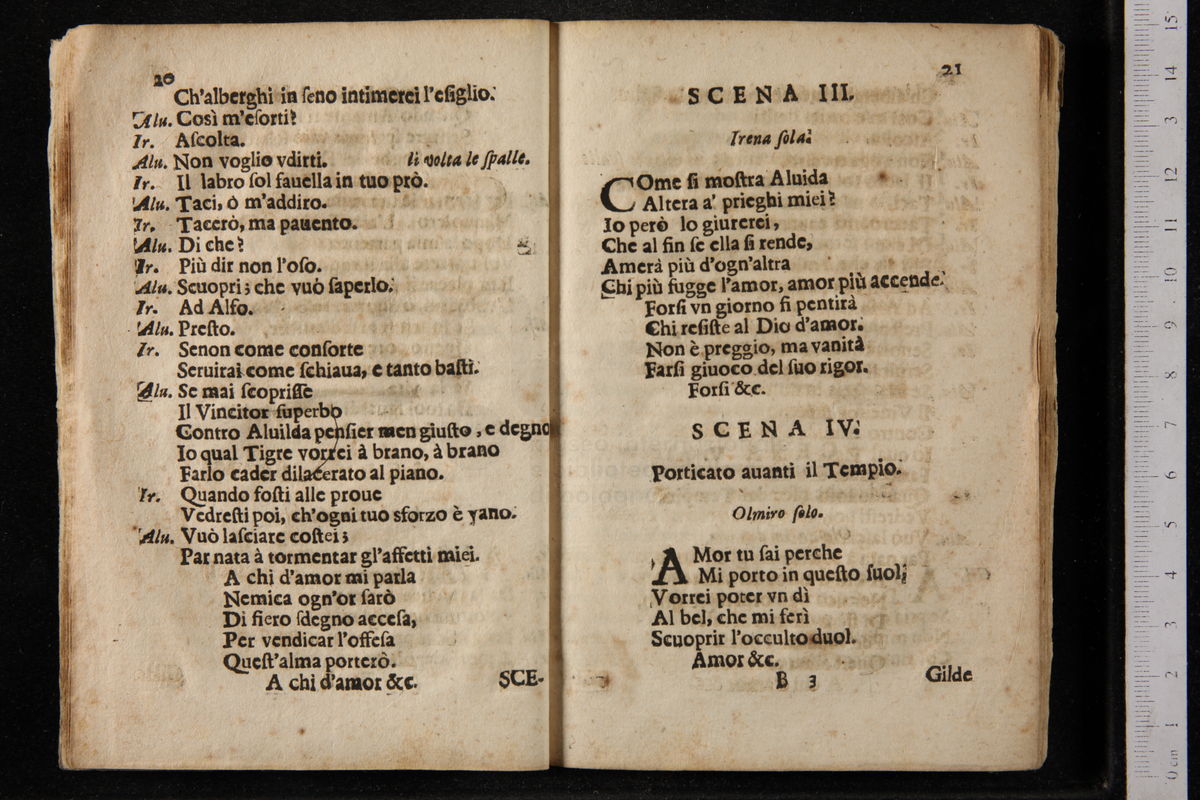 20
Ch'alberghi in ſeno intimerei l'eſiglio.
Alu. Così m'eſorti?
Ir. Aſcolta.
Alu. Non voglio vdirti. li volta le ſpalle.
Ir. Il labro ſol fauella in tuo prò.
Alu. Taci, ò m'addiro.
Ir. Tacerò, ma pauento.
Alu. Di che?
Ir. Più dir non l'oſo.
Alu. Scuopri; che vuó ſaperlo.
Ir. Ad Alfo.
Alu. Preſto.
Ir. Senon come conſorte
Seruirai come ſchiaua, e tanto baſti.
Alu. Se mai ſcopriſſe
Il Vincitor ſuperbo
Contro Aluilda penſier men giuſto, e degno
Io qual Tigre vorrei à brano, à brano
Farlo cader dilacerato al piano.
Ir. Quando foſti alle proue
Vedreſti poi, ch'ogni tuo sforzo è vano.
Alu. Vuò laſciare coſtei;
Par nata à tormentar gl'affetti miei.
A chi d'amor mi parla
Nemica ogn'or ſarò
Di fiero ſdegno acceſa,
Per vendicar l'offeſa
Queſt'alma porterò.
A chi d'amor &c.
SCE-
21
SCENA III.
Irena ſola.
COme ſi moſtra Aluida
Altera a' prieghi miei?
Io però lo giurerei,
Che al fin ſe ella ſi rende,
Amerà più d'ogn'altra
Chi più fugge l'amor, amor più accende.
Forſi vn giorno ſi pentirà
Chi reſiſte al Dio d'amor.
Non è preggio, ma vanità
Farſi giuoco del ſuo rigor.
Forſi &c.
SCENA IV.
Porticato auanti il Tempio.
Olmiro ſolo.
AMor tu ſai perche
Mi porto in queſto ſuol;
Vorrei poter vn dì
Al bel, che mi ferì
Scuoprir l'occulto duol.
Amor &c.
B 3
Gilde
0 cm 1 2 3 4 5 6 7 8 9 10 11 12 13 14 15